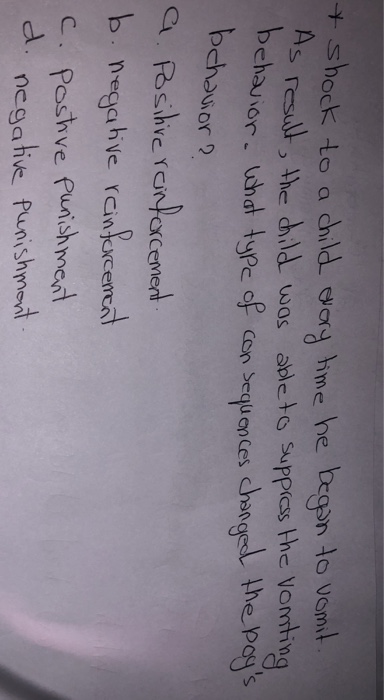 * shock to a child every time he began to vomit.
As result, the child was able to suppress the vomting
behavior. what type of consequences changed the boy's
behavior?
a. Positive reinforcement.
b. negative reinforcement
c. postive punishment
d. negative punishment.